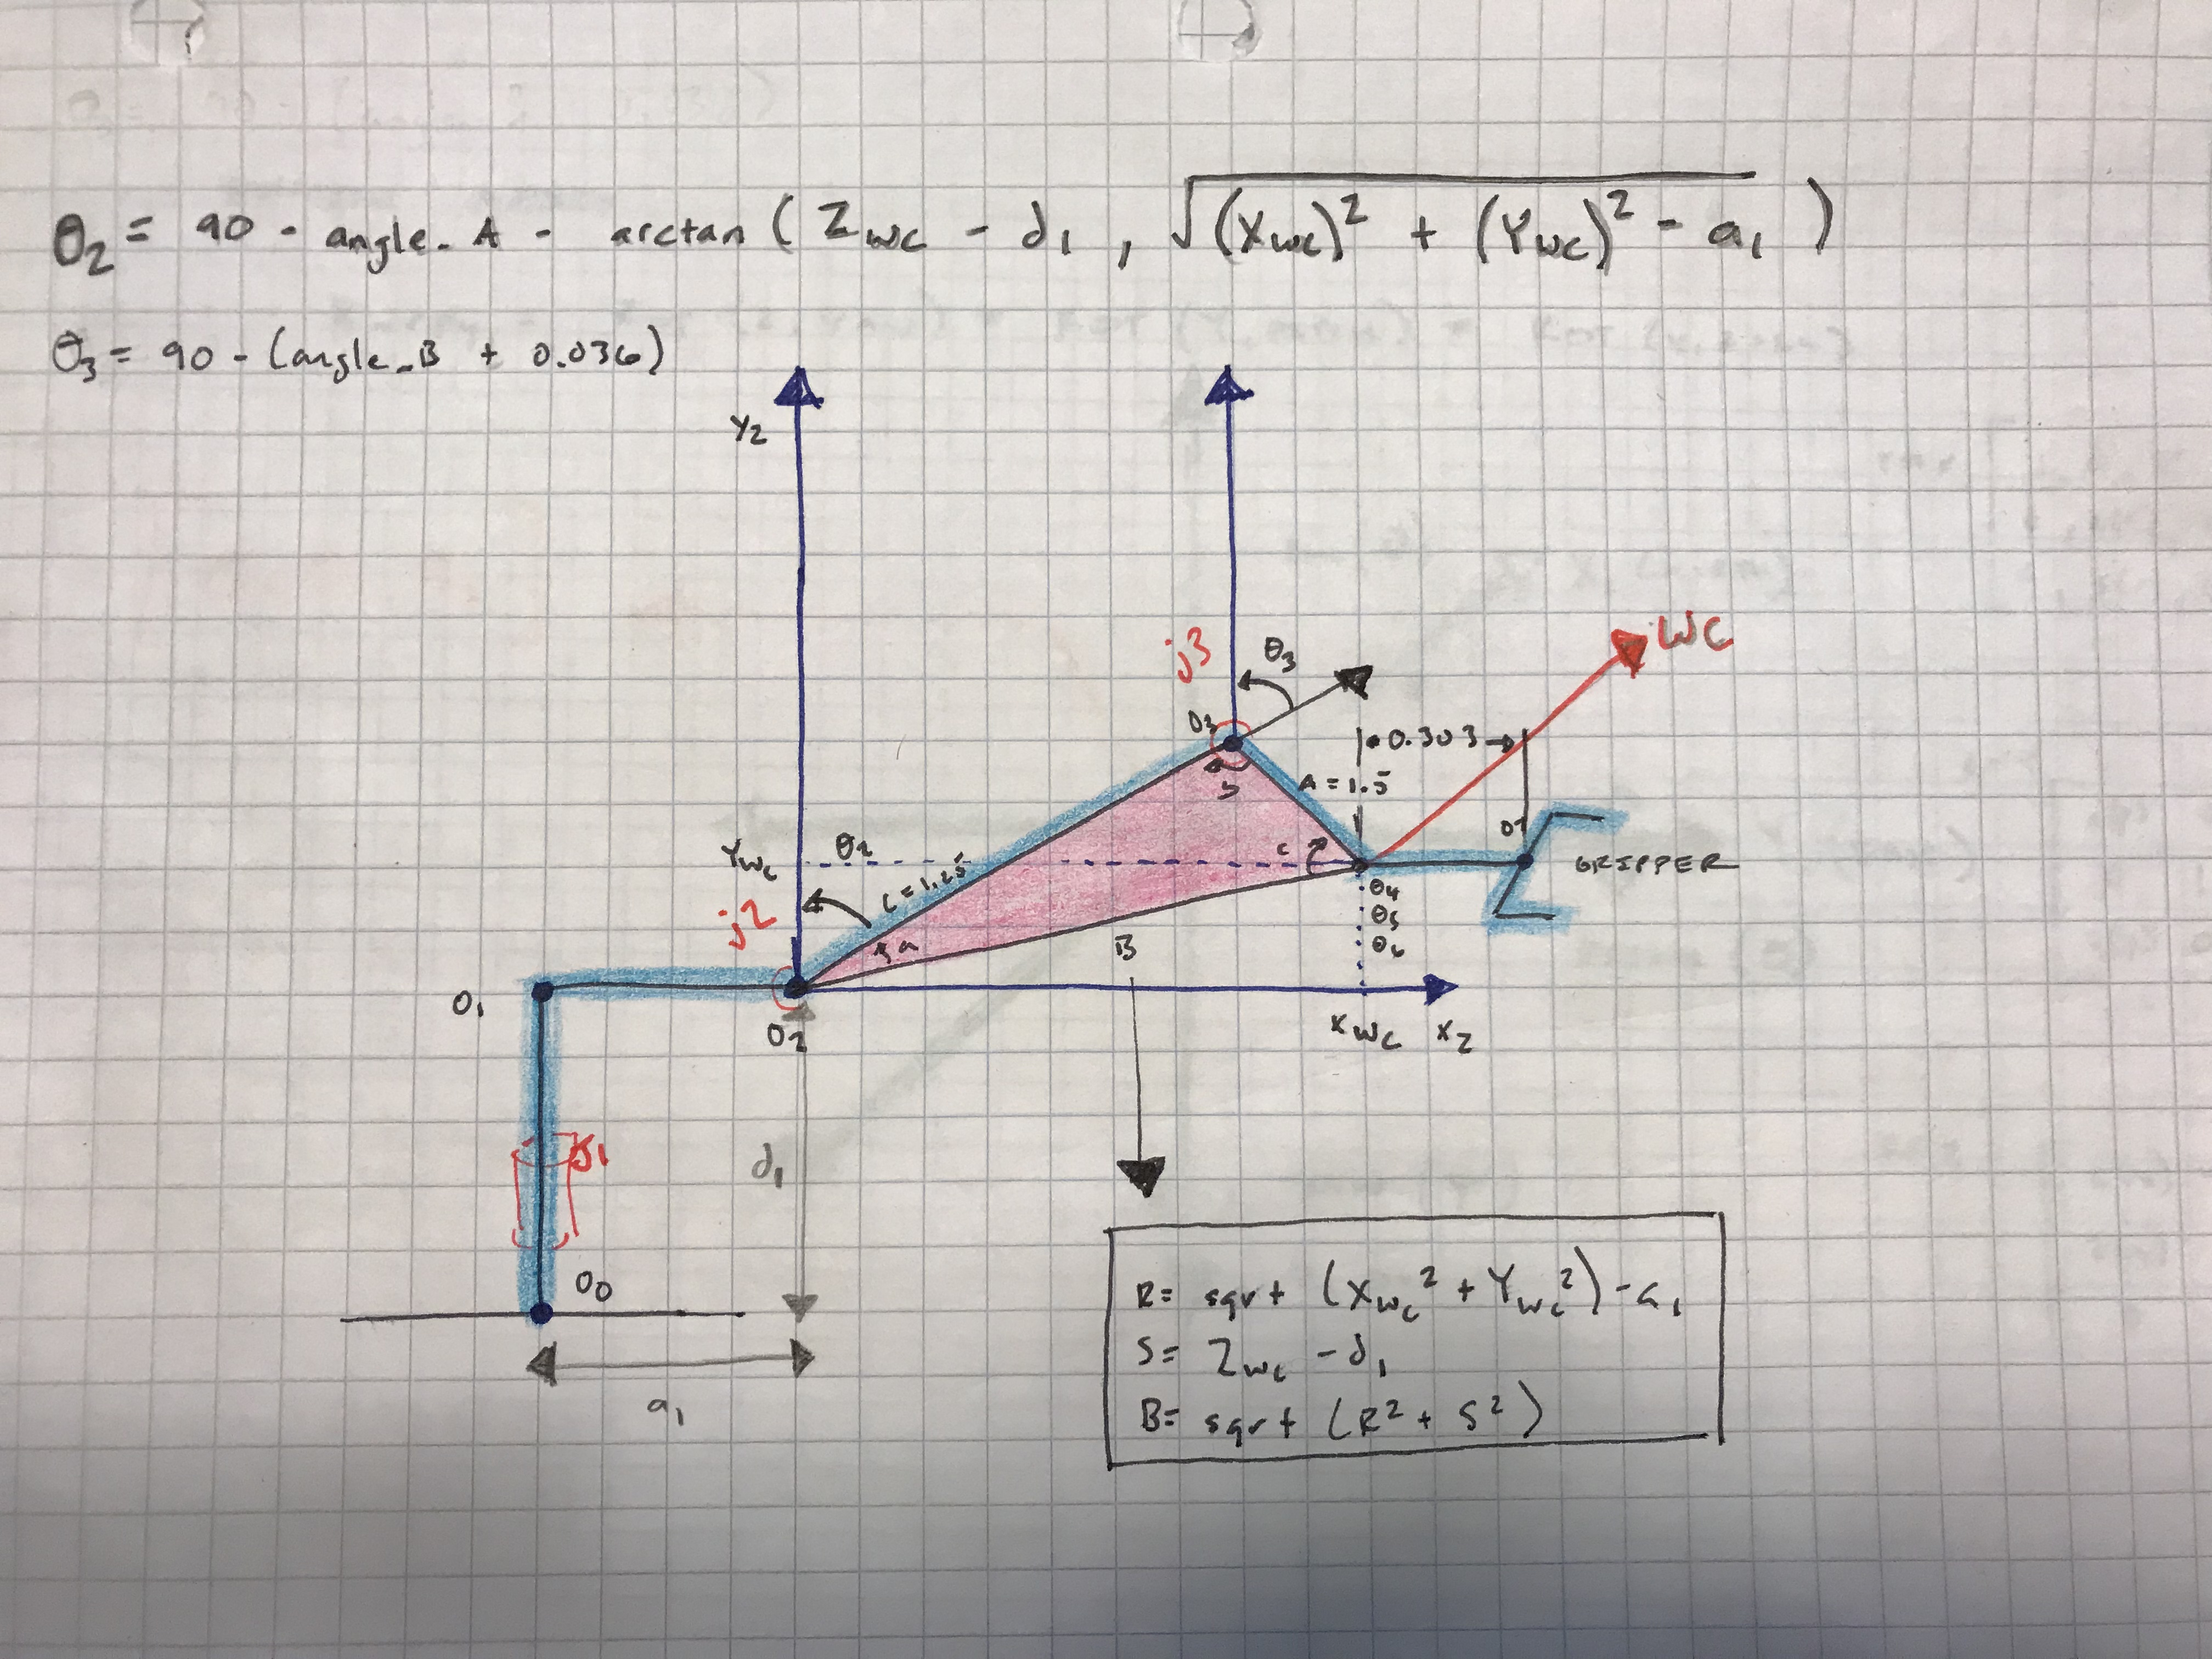 θ₂ = 90 - angle_A - arctan ( Zwc - d₁ , √(Xwc)² + (Ywc)² - a₁ )
θ₃ = 90 - (angle_B + 0.036)
Y₂
j3
θ₃
WC
O₃
0.303
b
A = 1.5
Ywc
θ₂
C = 1.25
c
GRIPPER
j2
a
B
θ₄
θ₅
θ₆
O₁
O₂
Xwc
X₂
J1
d₁
O₀
R = sqrt (Xwc² + Ywc²) - a₁
S = Zwc - d₁
B = sqrt (R² + S²)
a₁